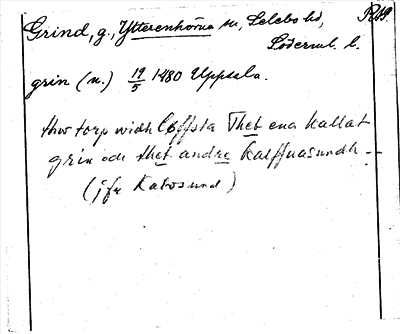 Grind, g., Ytterenhörna sn, Selebo hd,
Söderml. l.
grin (n.) 19/5 1480 Uppsala.
thw torp widh Cöffsta Thet ena kallat
grin och thet andre Kalffuasundh -
(jfr Kalvsund)